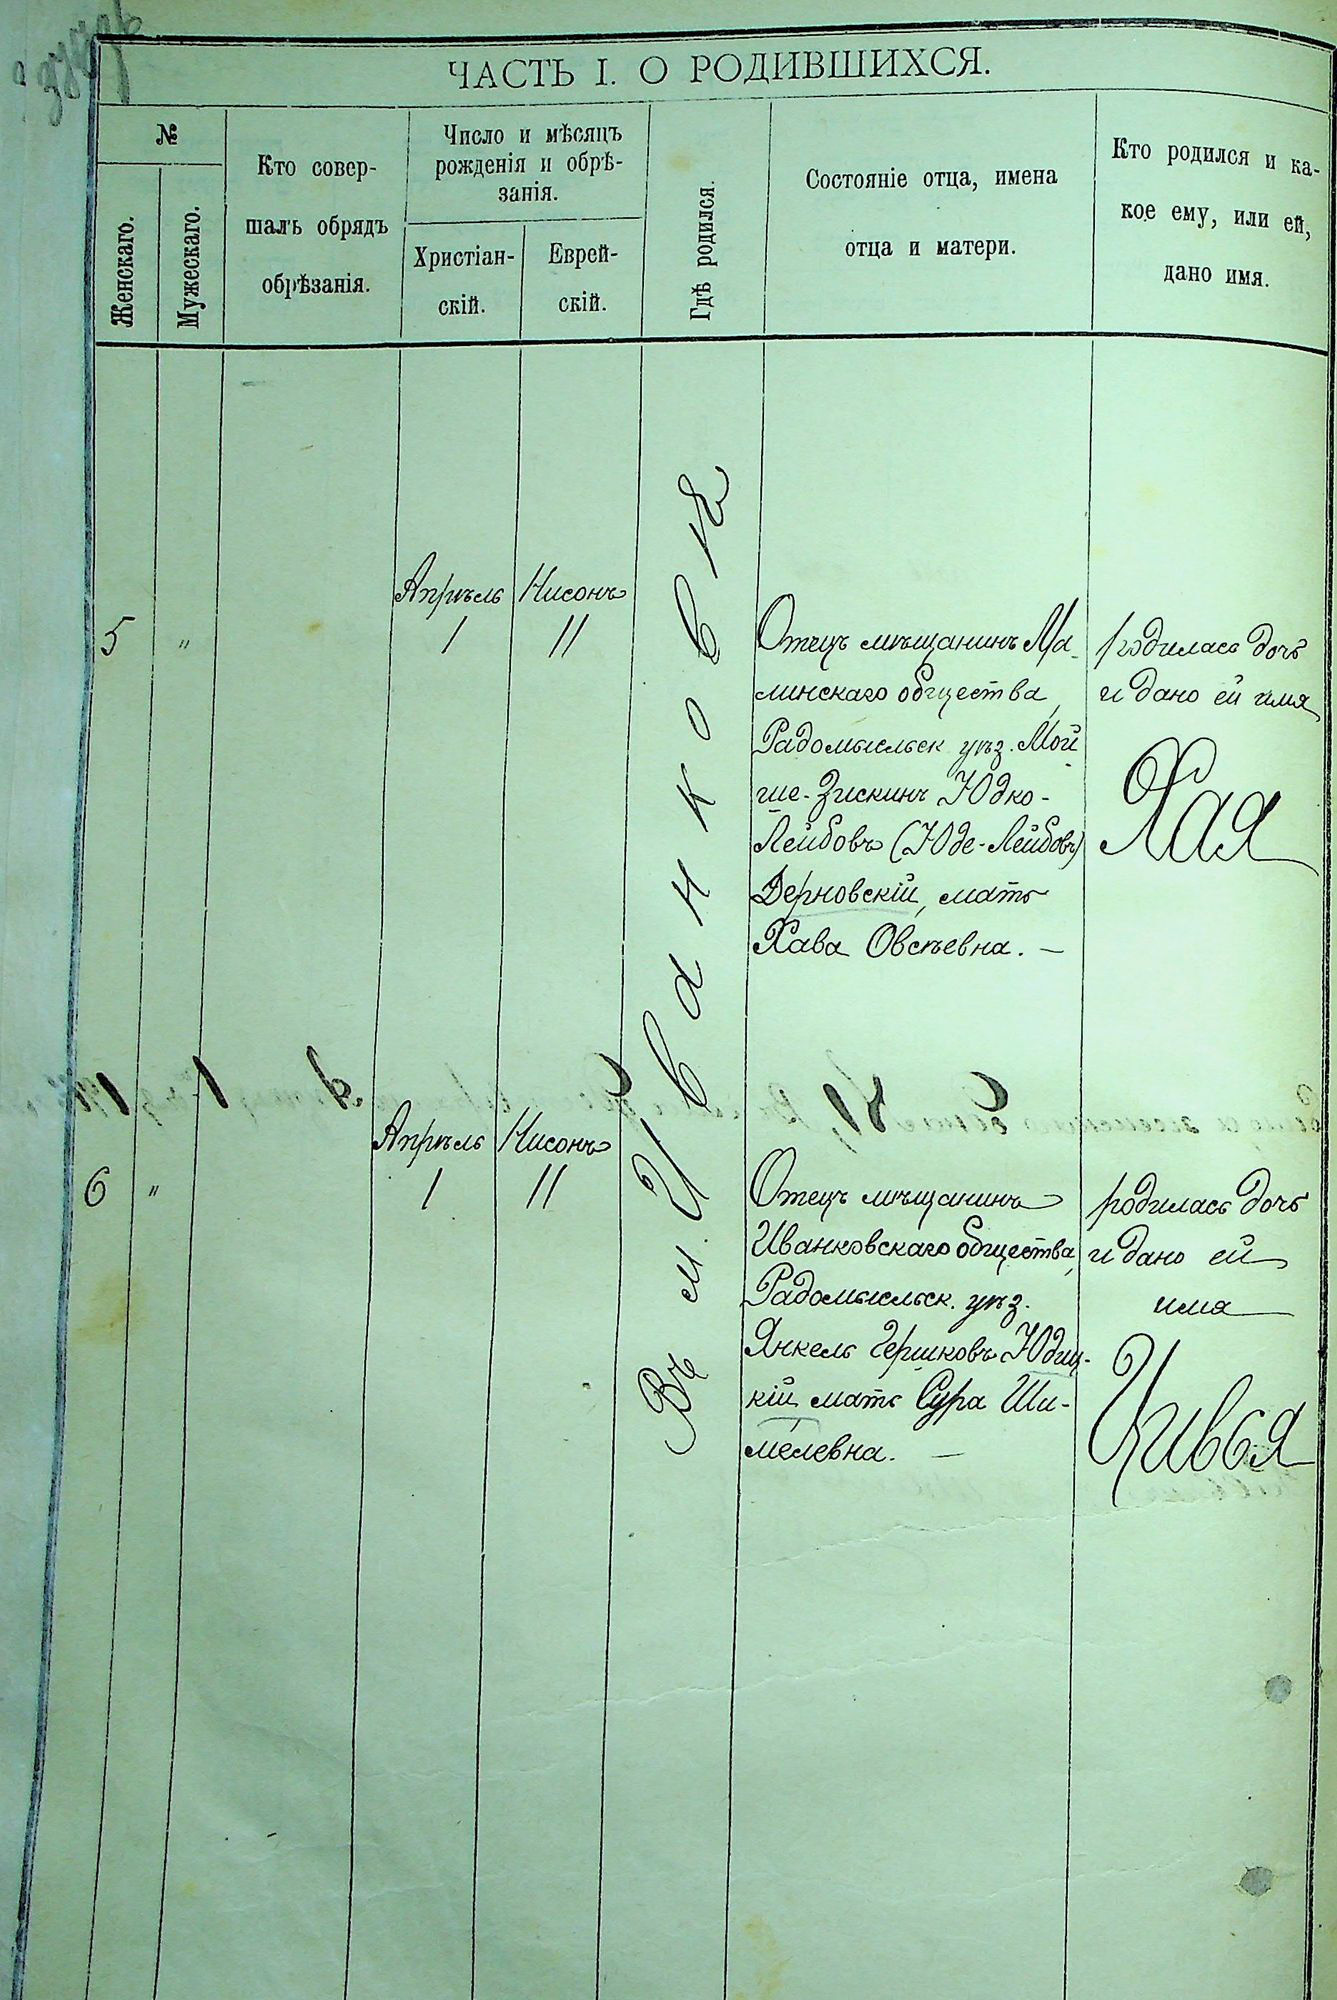 ЧАСТЬ I. О РОДИВШИХСЯ.
№
Женскаго.
Мужескаго.
Кто совер-
шалъ обрядъ
обрѣзанія.
Число и мѣсяцъ
рожденія и обрѣ-
занія.
Христіан-
скій.
Еврей-
скій.
Гдѣ родился.
Состояніе отца, имена
отца и матери.
Кто родился и ка-
кое ему, или ей,
дано имя.
Въ м. Иванковѣ
5
"
Апрѣль
1
Нисонъ
11
Отецъ мѣщанинъ Ма-
линскаго общества,
Радомысльск. уѣз. Мой
ше-Зискинъ Юдко-
Лейбовъ (Юде-Лейбовъ)
Дерновскій, мать
Хава Овсѣевна. —
родилась дочь
и дано ей имя
Хая
6
"
Апрѣль
1
Нисонъ
11
Отецъ мѣщанинъ
Иванковскаго общества,
Радомысльск. уѣз.
Янкель Гершковъ Юдиц-
кій, мать Сура Ши-
мелевна. —
родилась дочь
и дано ей
имя
Цивья